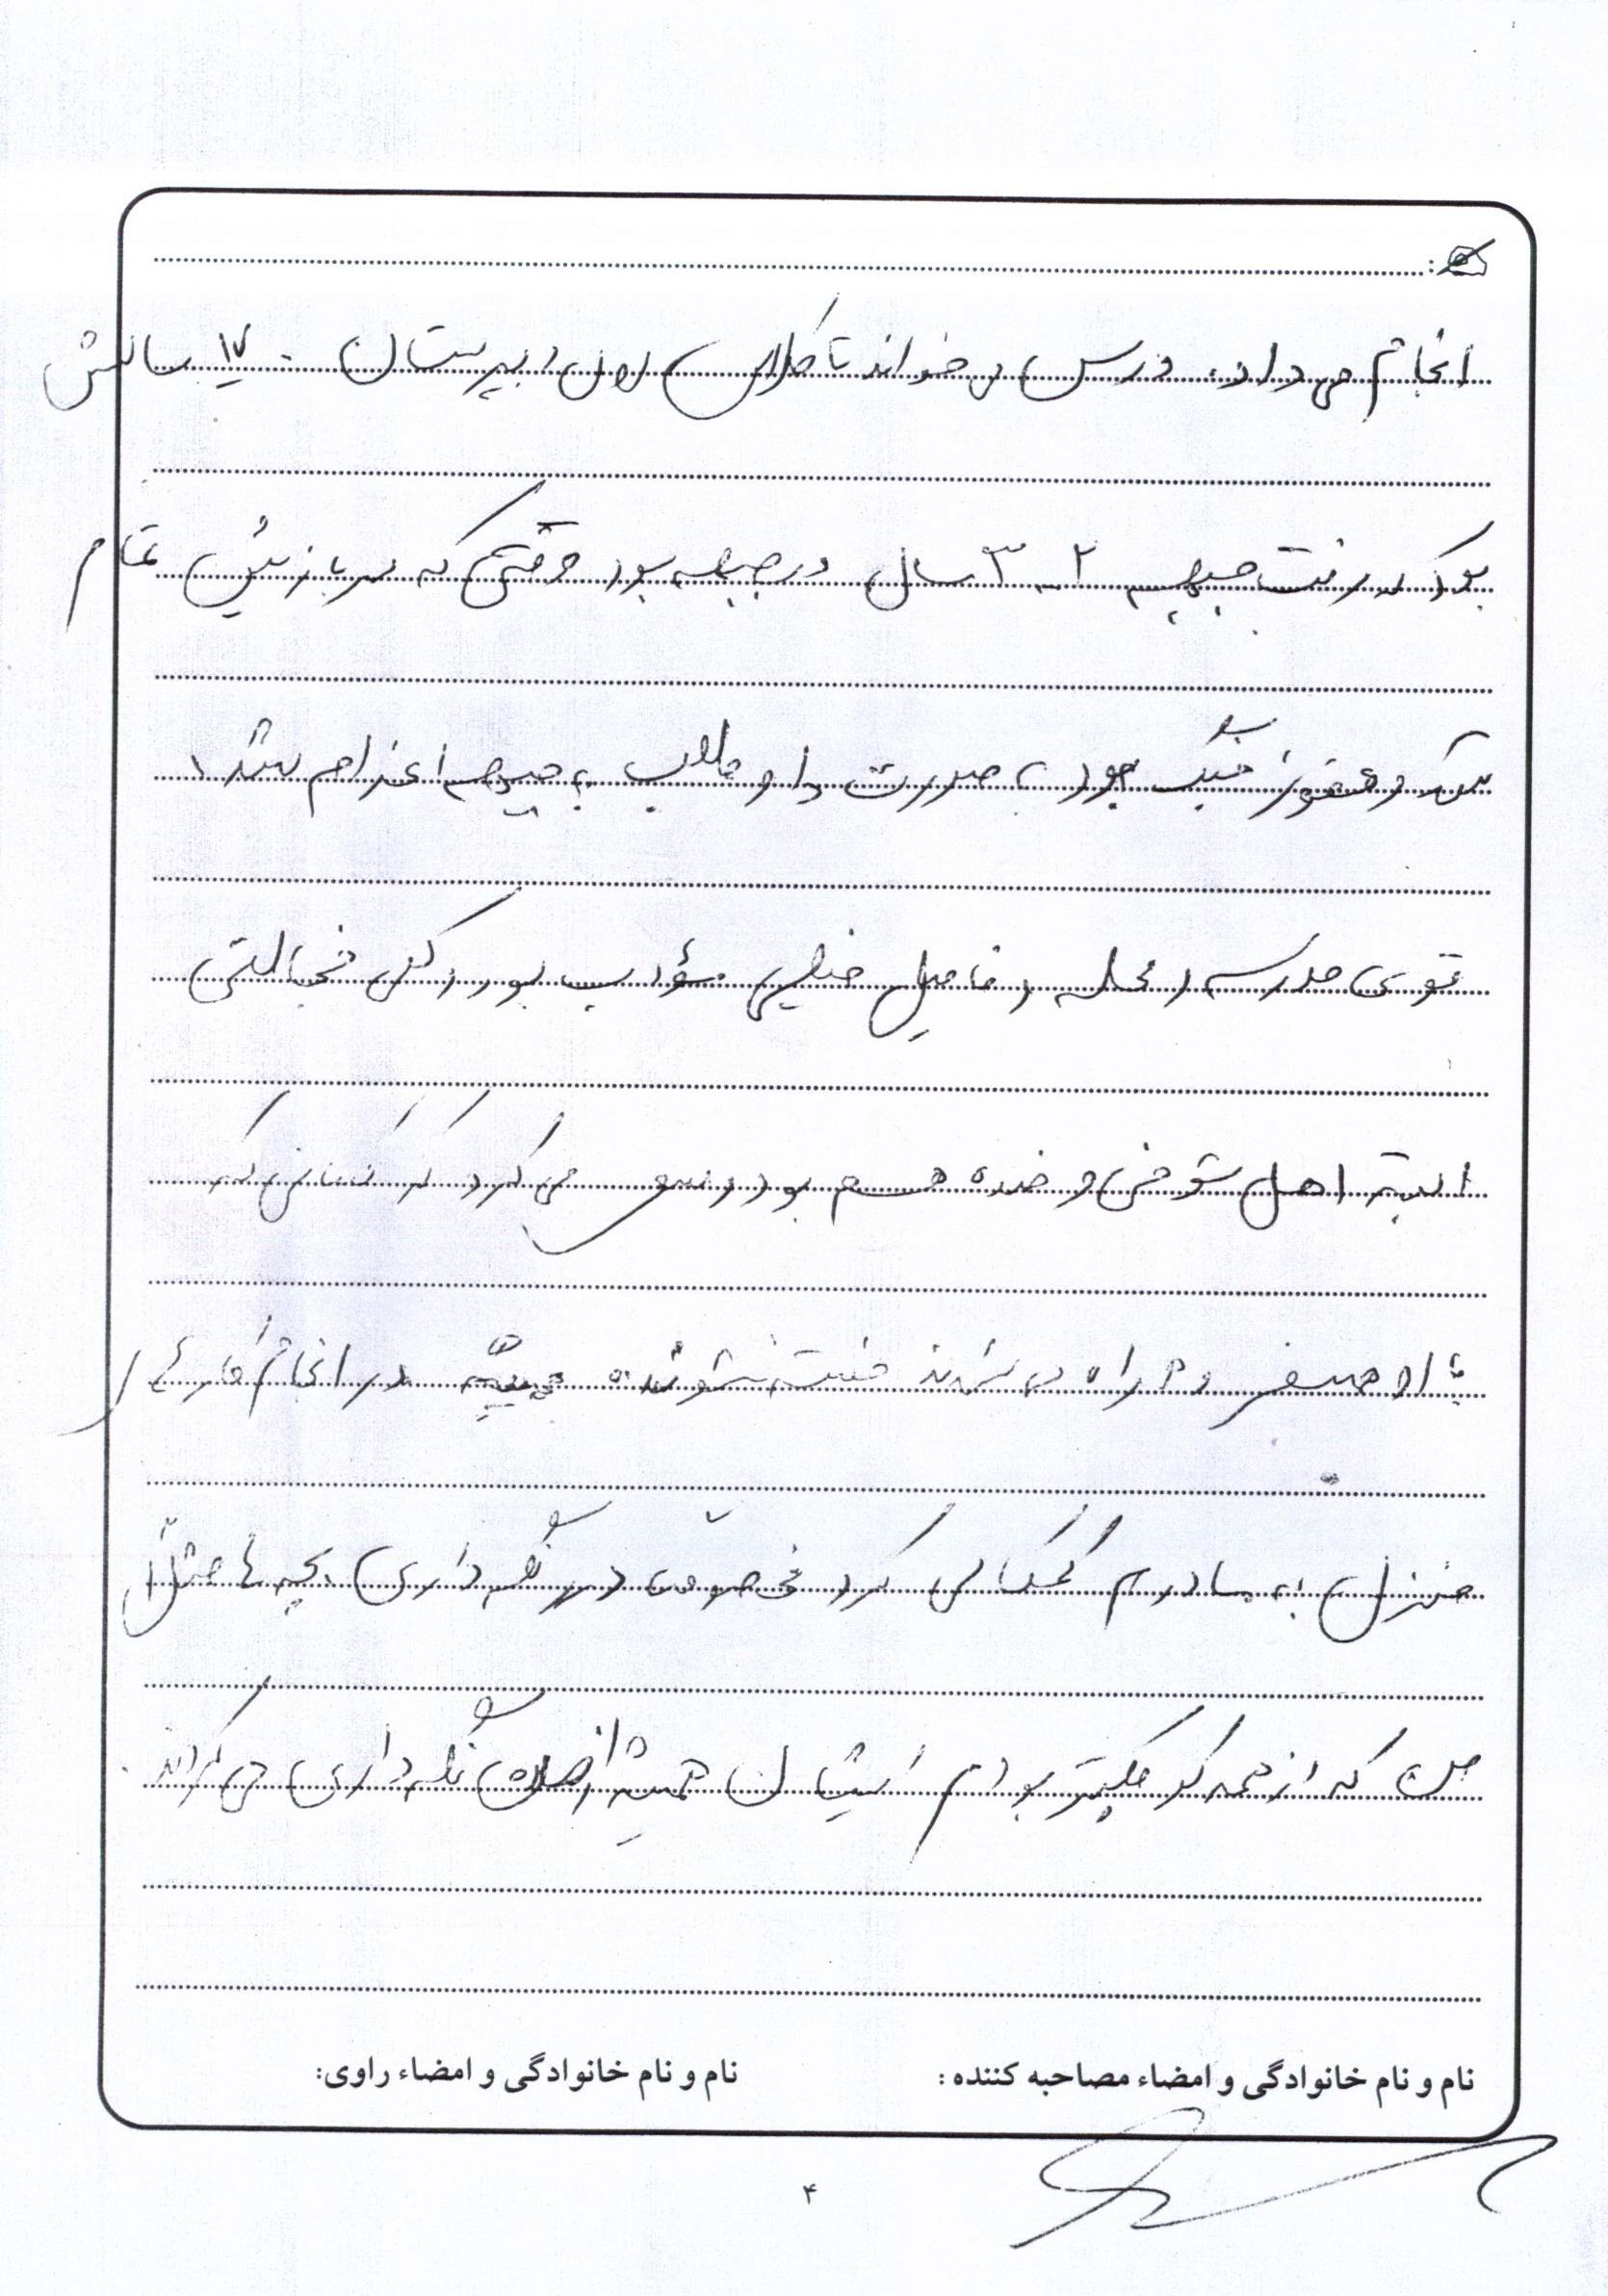 انجام می داد. درس می خواند تا کلاس اول دبیرستان. ۱۷ سالش
بود که رفت جبهه ۲-۳ سال در جبهه بود وقتی که سربازیش تمام
شد و هنوز جنگ بود به صورت داوطلب به جبهه اعزام شد.
توی مدرسه و محله و فامیل خیلی مؤدب بود و کمی خجالتی
البته اهل شوخی و خنده هم بود و سعی می کرد که کسانی که
با او همسفر و همراه می شدند خسته نشوند همیشه در انجام کارهای
منزل به مادرم کمک می کرد مخصوصا در نگه داری بچه ها مثلاً
من که از همه کوچکتر بودم ایشان همیشه از من نگه داری می کردند.
نام و نام خانوادگی و امضاء مصاحبه کننده : نام و نام خانوادگی و امضاء راوی:
۴